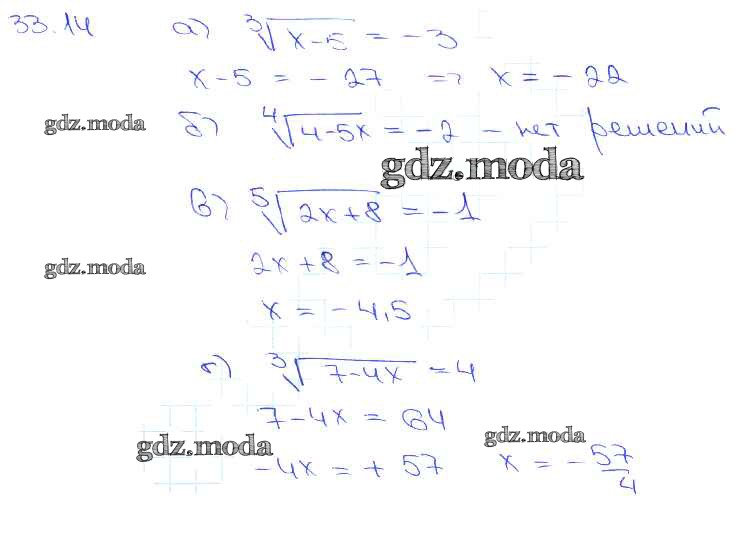 33.14 а) ∛(x-5) = -3
x-5 = -27 => x = -22
gdz.moda б) ∜(4-5x) = -2 - нет решений
gdz.moda
в) ⁵√(2x+8) = -1
gdz.moda 2x+8 = -1
x = -4,5
г) ∛(7-4x) = 4
7-4x = 64
gdz.moda gdz.moda
-4x = + 57 x = -57/4